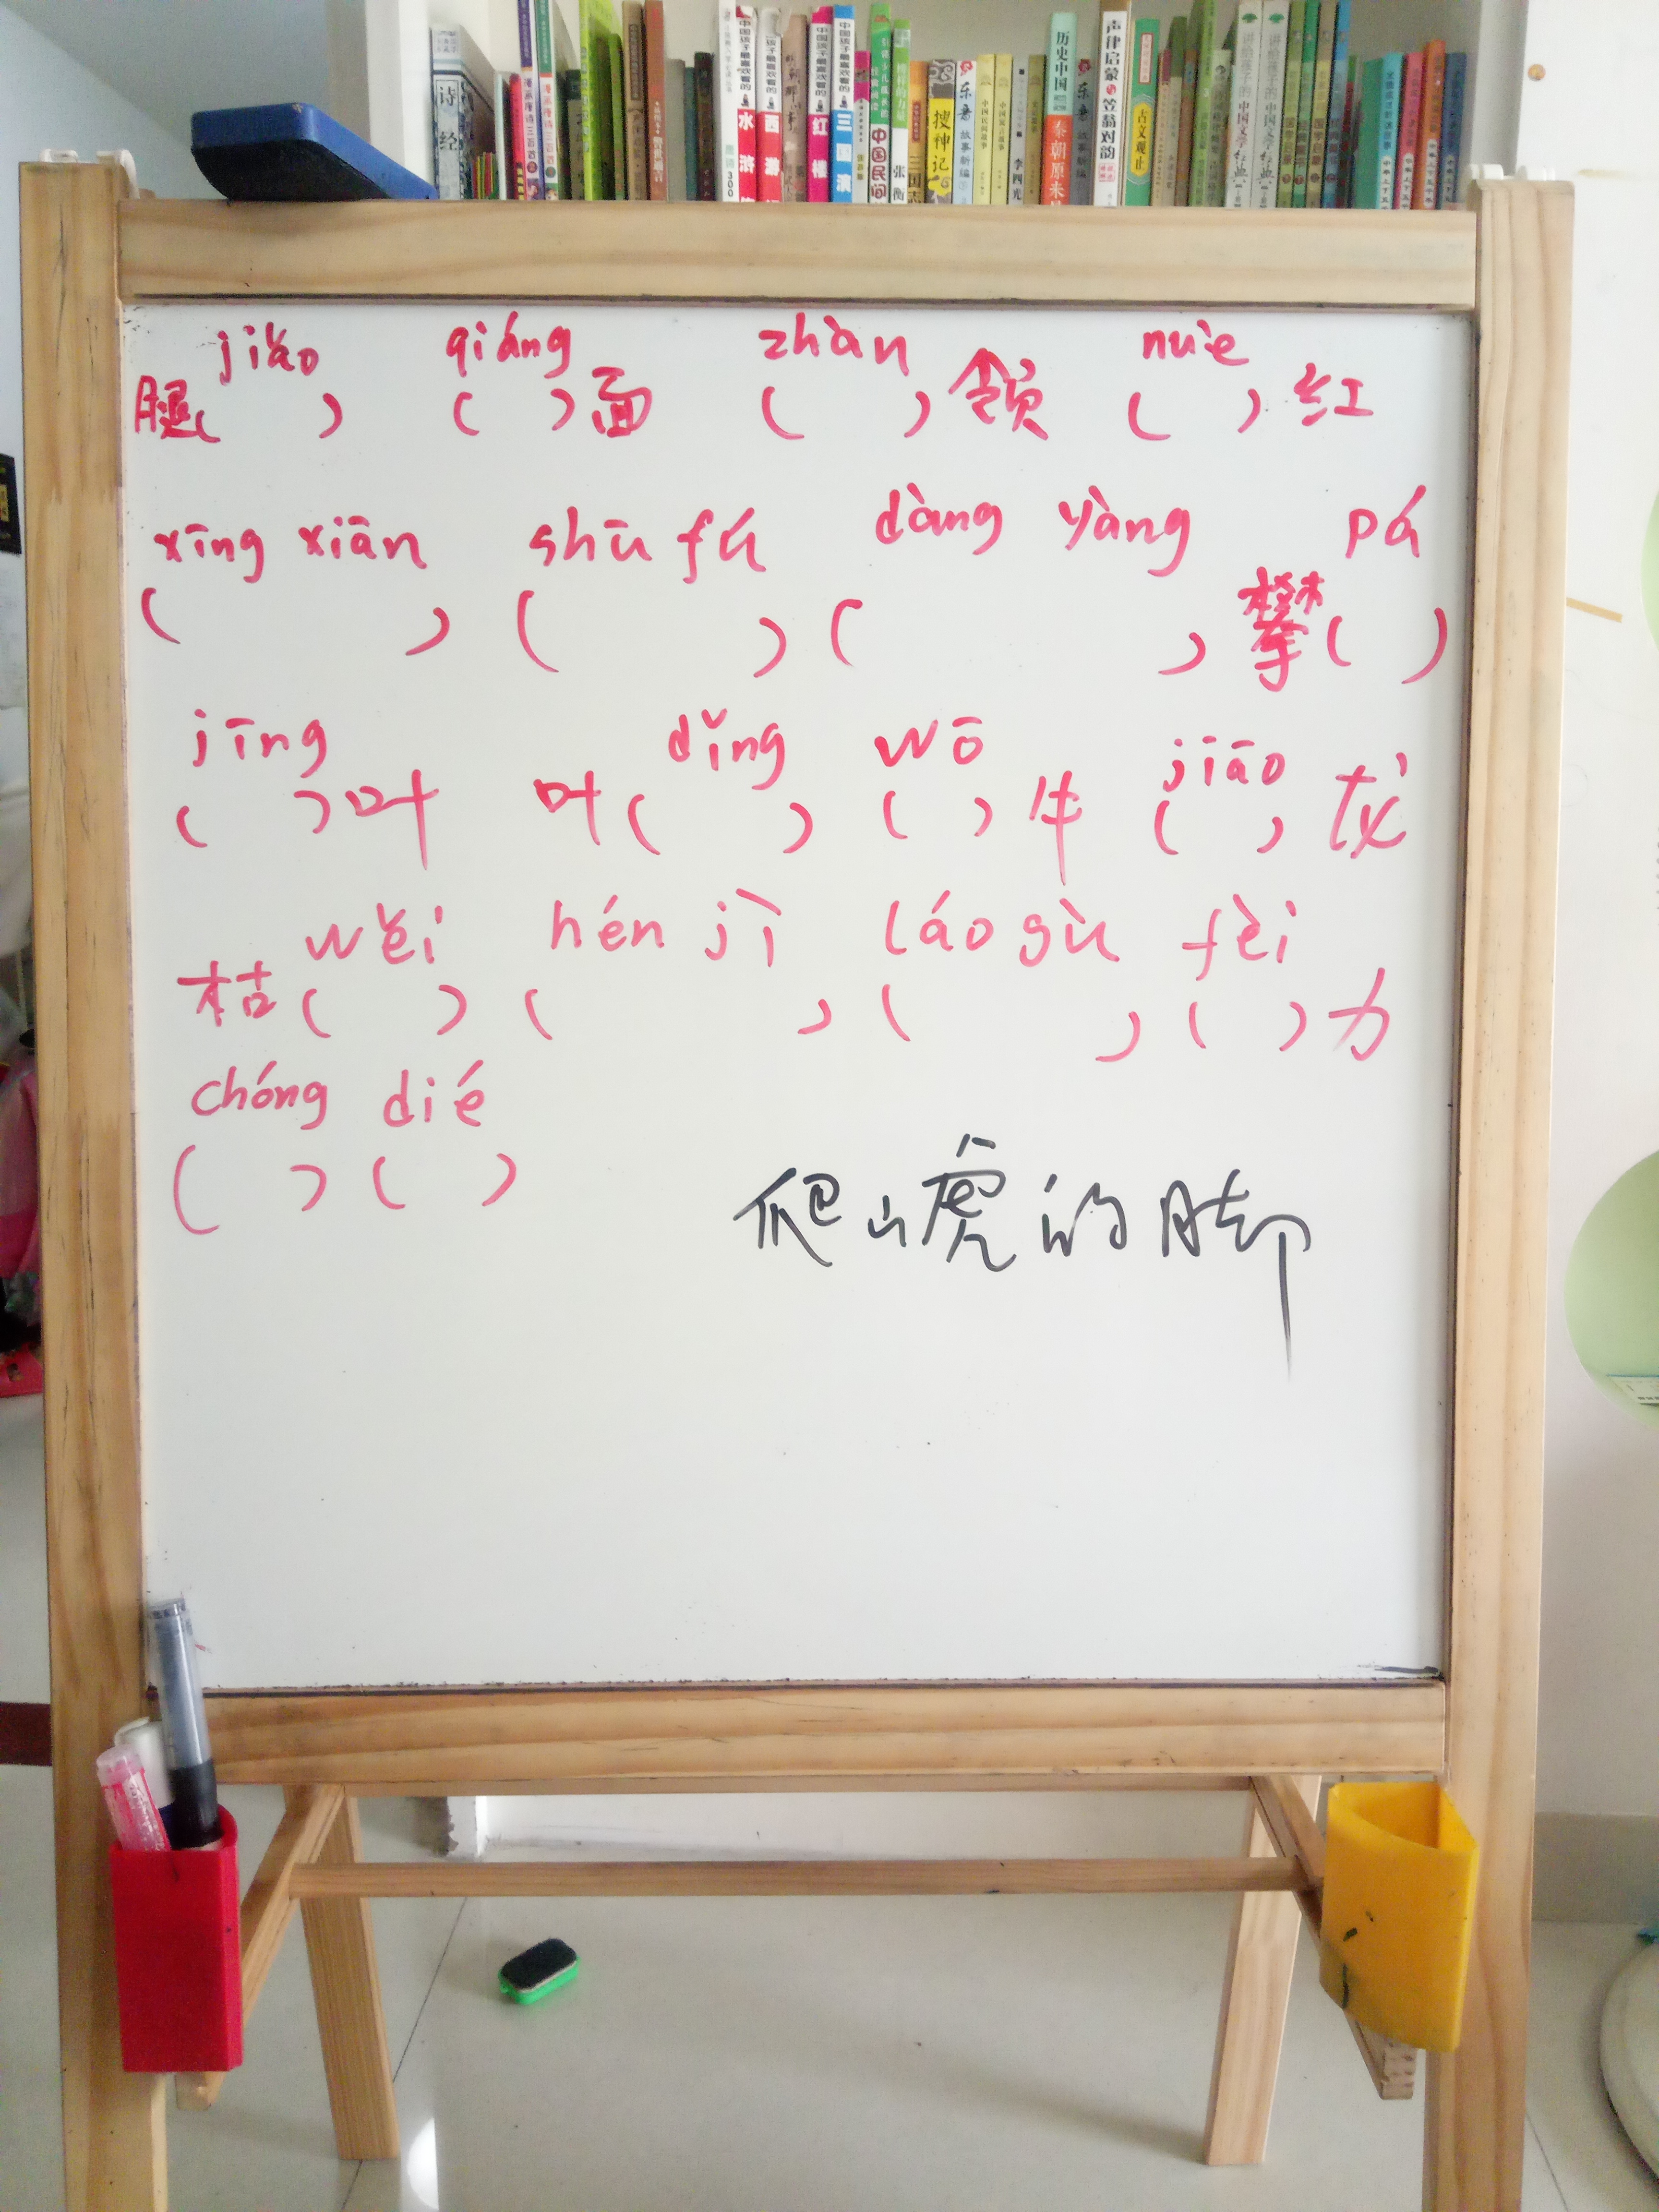 诗经
水浒
西游
红楼
三国演
中国民间
张衡
搜神记
李四光
历史中国
秦朝原来
声律启蒙与笠翁对韵
古文观止
jiǎo qiáng zhàn nuè
腿( ) ( )面 ( )领 ( )红
xīng xiān shū fú dàng yàng pá
( ) ( ) ( ) 攀( )
jīng dǐng wō jiāo
( )叶 叶( ) ( )牛 ( )龙
wěi hén jì láo gù fèi
枯( ) ( ) ( ) ( )力
chóng dié
( ) ( )
爬山虎的脚